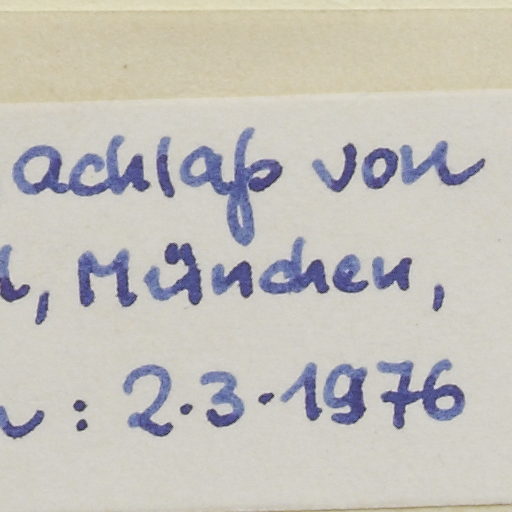 achlaß von
, München,
: 2.3.1976